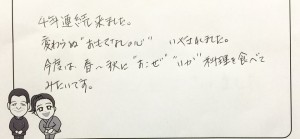 4年連続来ました。
変わらぬ"おもてなしの心" いやされました。
今度は 春〜秋に"おこぜ""いか"料理を食べて
みたいです。